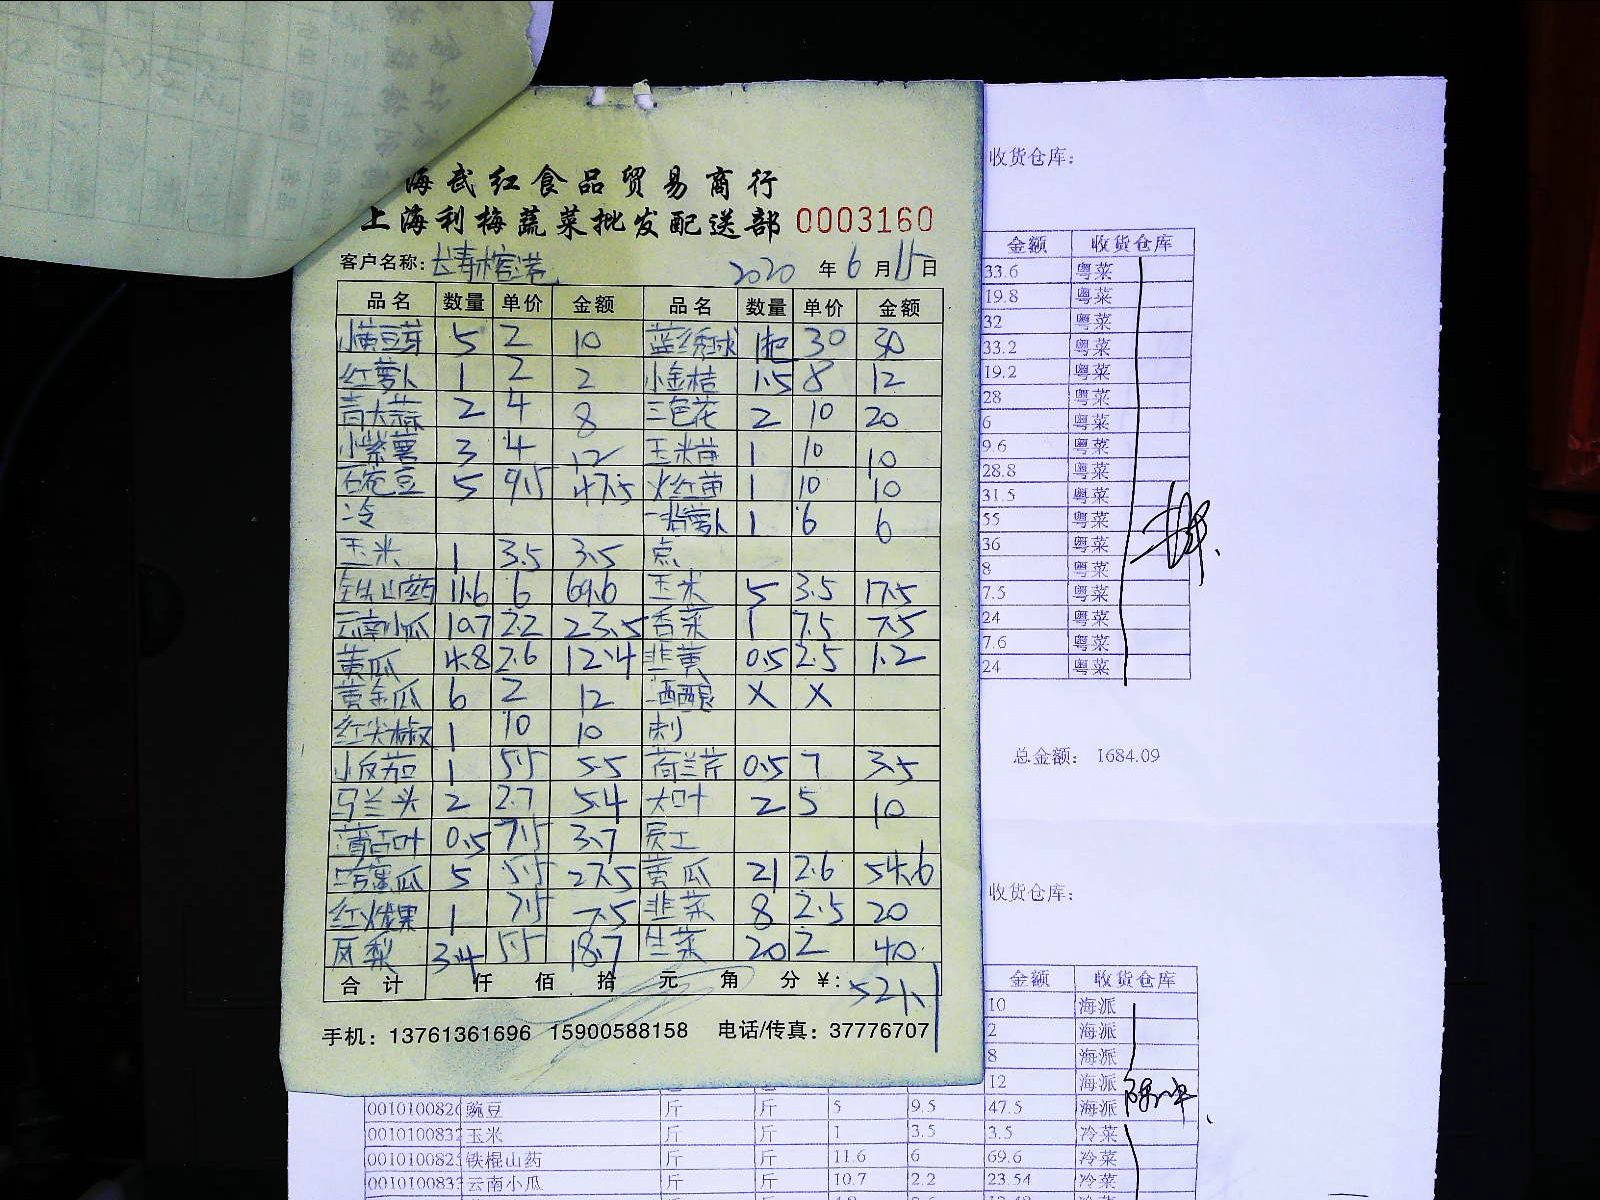 海武红食品贸易商行
上海利梅蔬菜批发配送部 0003160
客户名称: 长寿 2020 年 6 月 15 日
品名 数量 单价 金额 品名 数量 单价 金额
小黄豆芽 5 2 10 蓝绣球 1包 30 30
红萝卜 1 2 2 小金桔 1.5 8 12
青大蒜 2 4 8 三色花 2 10 20
小紫薯 3 4 12 玉米苗 1 10 10
豆 5 9.5 47.5 火红苗 1 10 10
冷 萝卜 1 6 6
玉米 1 3.5 3.5 点
铁山药 11.6 6 69.6 玉米 5 3.5 17.5
云南小瓜 10.7 2.2 23.5 香菜 1 7.5 7.5
黄瓜 4.8 2.6 12.4 韭黄 0.5 2.5 1.2
黄金瓜 6 2 12 酒酿 X X
红尖椒 1 10 10 刺
小反茄 1 5.5 5.5 荷兰芹 0.5 7 3.5
马兰头 2 2.7 5.4 大叶 2 5 10
薄百叶 0.5 7.5 3.7 员工
蜜瓜 5 5.5 27.5 黄瓜 21 2.6 54.6
红火龙果 1 7.5 7.5 韭菜 8 2.5 20
凤梨 3.4 5.5 18.7 生菜 20 2 40
合计 仟 佰 拾 元 角 分 ¥: 521.1
手机: 13761361696 15900588158 电话/传真: 37776707
收货仓库:
金额 收货仓库
33.6 粤菜
19.8 粤菜
32 粤菜
33.2 粤菜
19.2 粤菜
28 粤菜
6 粤菜
9.6 粤菜
28.8 粤菜
31.5 粤菜
55 粤菜
36 粤菜
8 粤菜
7.5 粤菜
24 粤菜
7.6 粤菜
24 粤菜
总金额: 1684.09
收货仓库:
金额 收货仓库
10 海派
2 海派
8 海派
12 海派
001010082 豌豆 斤 斤 5 9.5 47.5 海派
001010083 玉米 斤 斤 1 3.5 3.5 冷菜
001010082 铁棍山药 斤 斤 11.6 6 69.6 冷菜
001010083 云南小瓜 斤 斤 10.7 2.2 23.54 冷菜